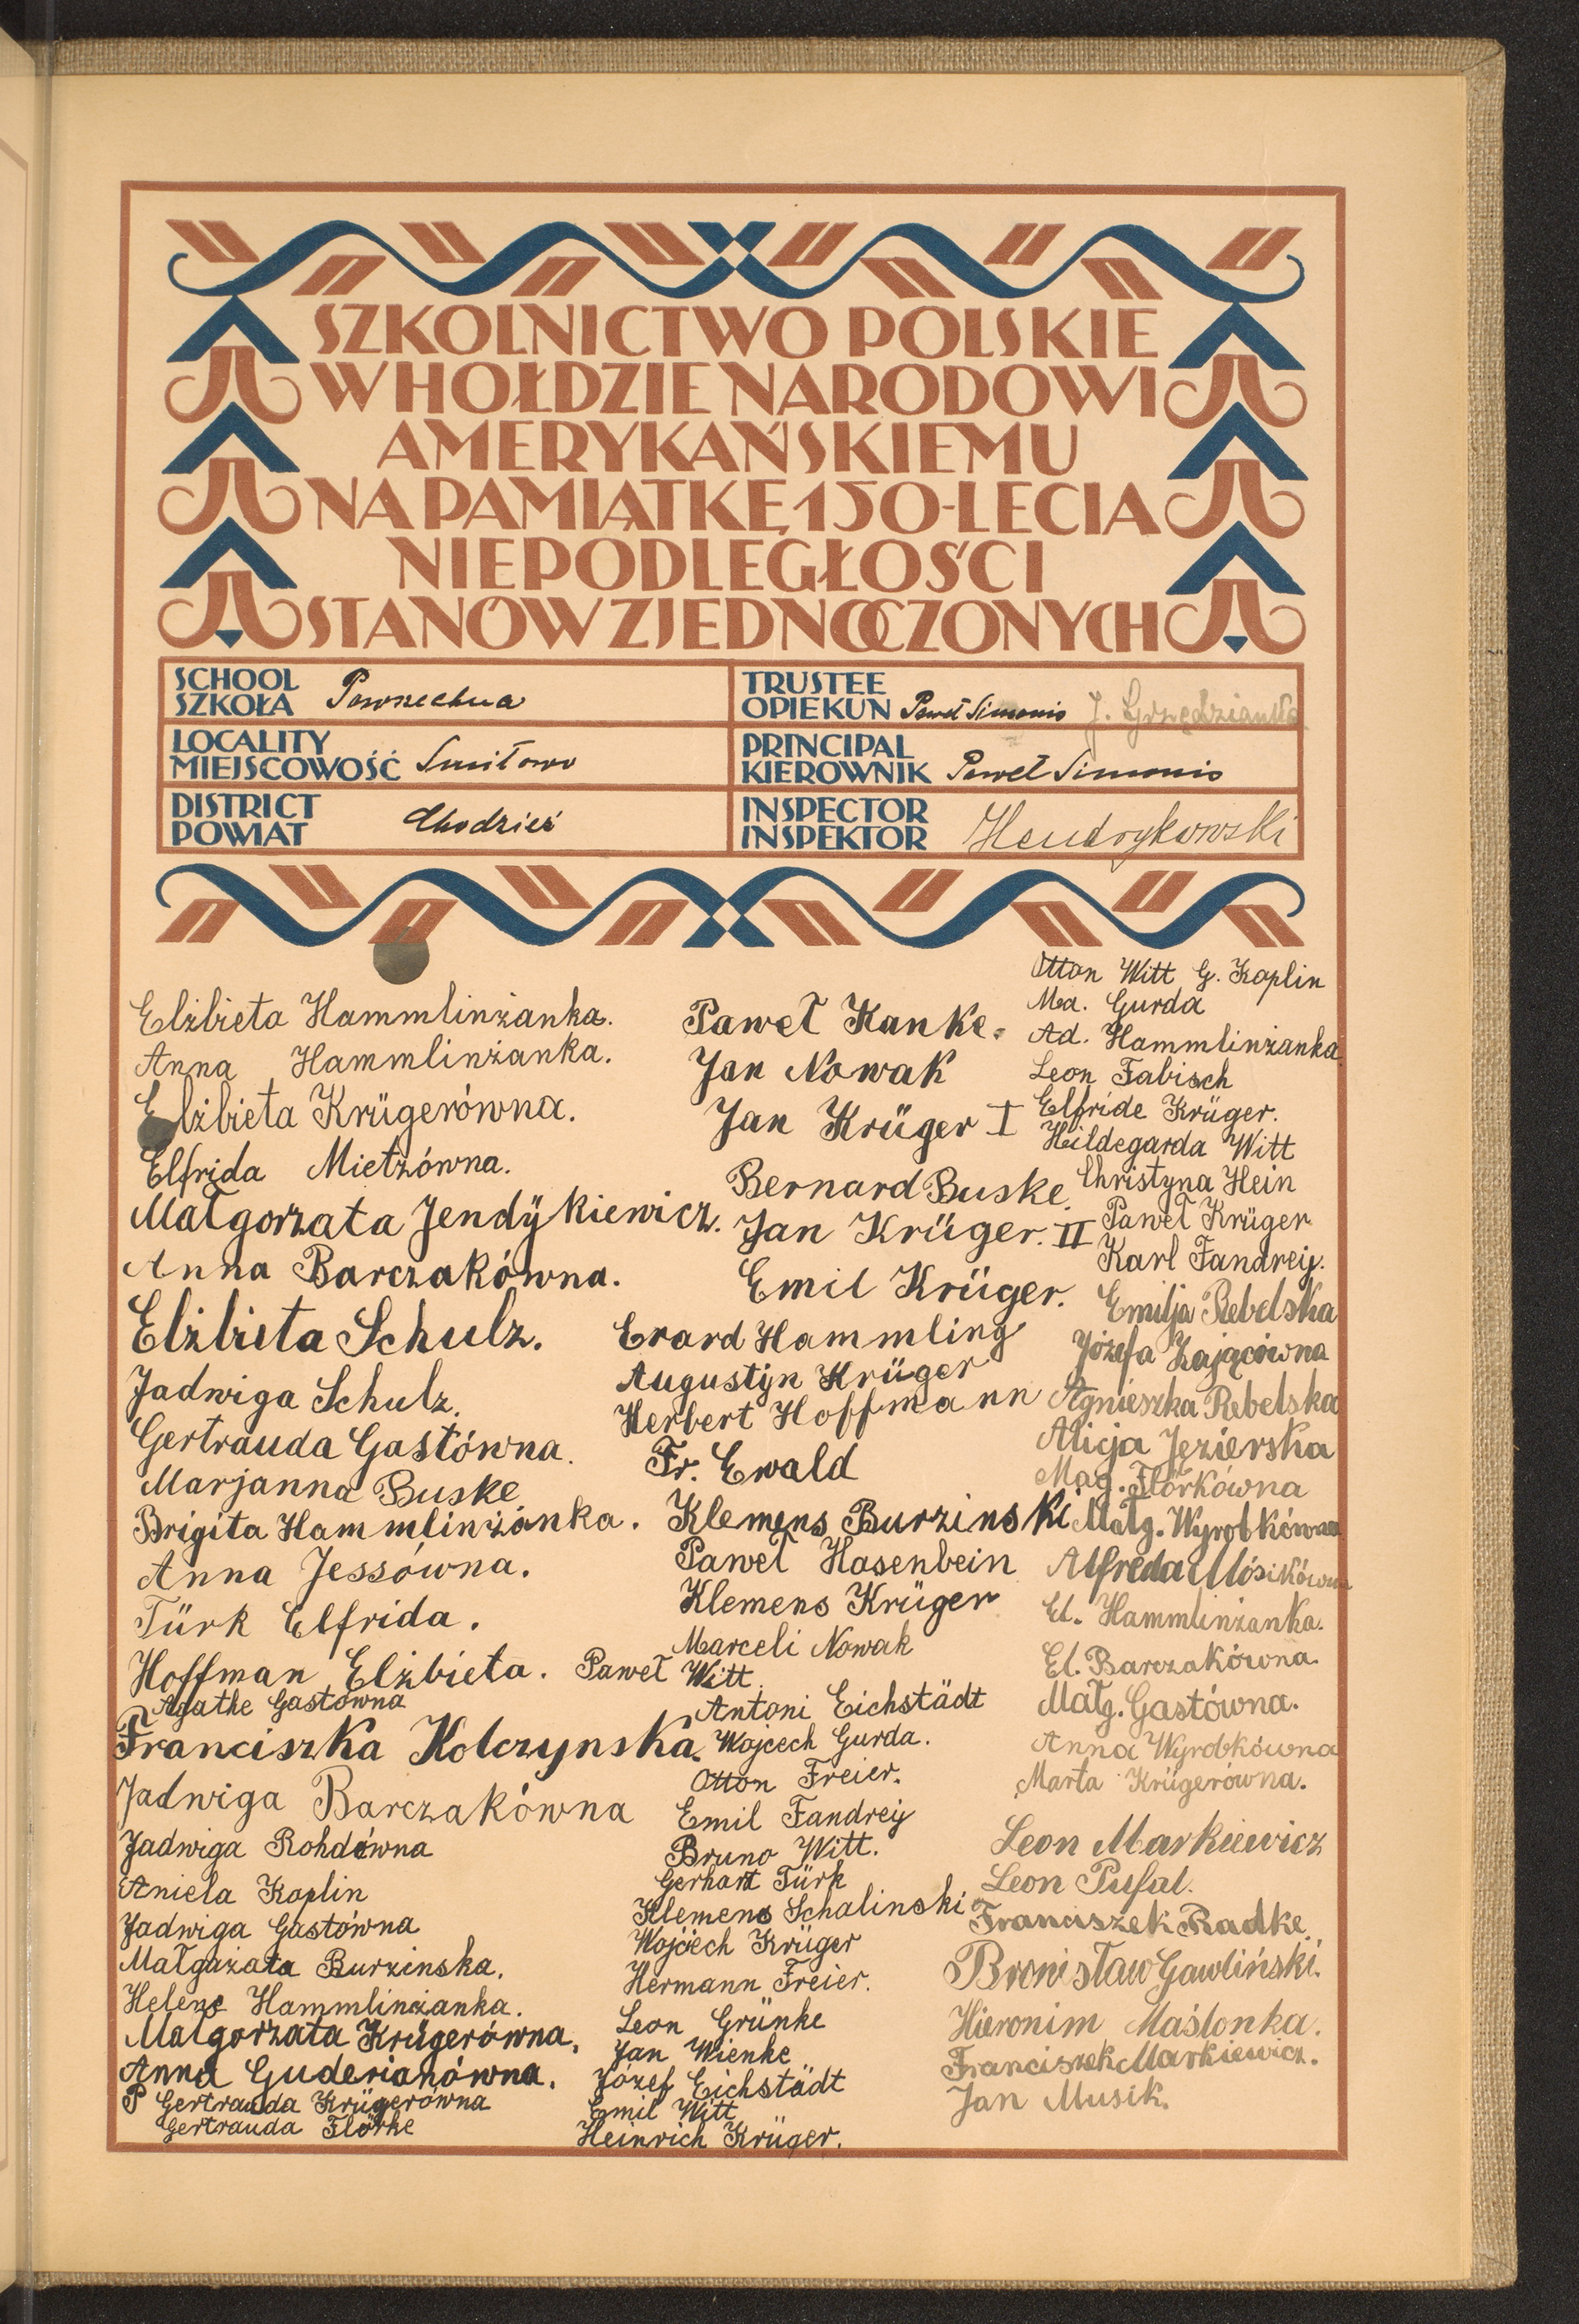 SZKOLNICTWO POLSKIE
W HOŁDZIE NARODOWI
AMERYKAŃSKIEMU
NA PAMIĄTKĘ 150-LECIA
NIEPODLEGŁOŚCI
STANÓW ZJEDNOCZONYCH
SCHOOL
SZKOŁA Powszechna
TRUSTEE
OPIEKUN Paweł Simonis J. Grzędzianka
LOCALITY
MIEJSCOWOŚĆ Smiłowo
PRINCIPAL
KIEROWNIK Paweł Simonis
DISTRICT
POWIAT Chodzież
INSPECTOR
INSPEKTOR Hendrykowski
Elżbieta Hammlinżanka.
Anna Hammlinżanka.
Elżbieta Krügerówna.
Elfrida Mietzówna.
Małgorzata Jendÿkiewicz.
Anna Barczakówna.
Elżbieta Schulz.
Jadwiga Schulz.
Gertrauda Gastówna.
Marjanna Buske
Brigita Hammlinżanka.
Anna Jessówna.
Türk Elfrida.
Hoffman Elżbieta.
Agathe Gastówna
Franciszka Kolczynska.
Jadwiga Barczakówna
Jadwiga Rohdówna
Aniela Koplin
Jadwiga Gastówna
Małgażata Burzinska.
Helene Hammlinżanka.
Małgorzata Krügerówna.
Anna Guderianówna.
P Gertrauda Krügerówna
Gertrauda Florke
Paweł Kanke.
Jan Nowak
Jan Krüger I
Bernard Buske.
Jan Krüger. II
Emil Krüger.
Erard Hammling
Augustÿn Krüger
Herbert Hoffmann
Fr. Ewald
Klemens Burzinski
Paweł Hasenbein
Klemens Krüger
Marceli Nowak
Paweł Witt.
Antoni Eichstädt
Wojcech Gurda.
Otton Freier.
Emil Fandreiy
Bruno Witt.
Gerhart Türk
Klemens Schalinski
Wojciech Krüger
Hermann Freier.
Leon Grünke
Jan Wienke
Józef Eichstädt
Emil Witt
Heinrich Krüger.
Otton Witt G. Koplin
Ma. Gurda
Ad. Hammlinżanka
Leon Fabisch
Elfride Krüger.
Hildegarda Witt
Christyna Hein
Paweł Krüger
Karl Fandreiy.
Emilja Rebelska
Józefa Zającówna
Agnieszka Rebelska
Alicja Jezierska
Mag. Florkówna
Małg. Wyrobkówna
Alfreda Mósikówna
El. Hammlinżanka.
El. Barczakówna.
Małg. Gastówna.
Anna Wyrobkówna
Marta Krügerówna.
Leon Markiewicz
Leon Pufal.
Franciszek Radke.
Bronisław Gawliński.
Hieronim Maślonka.
Franciszek Markiewicz.
Jan Musik.